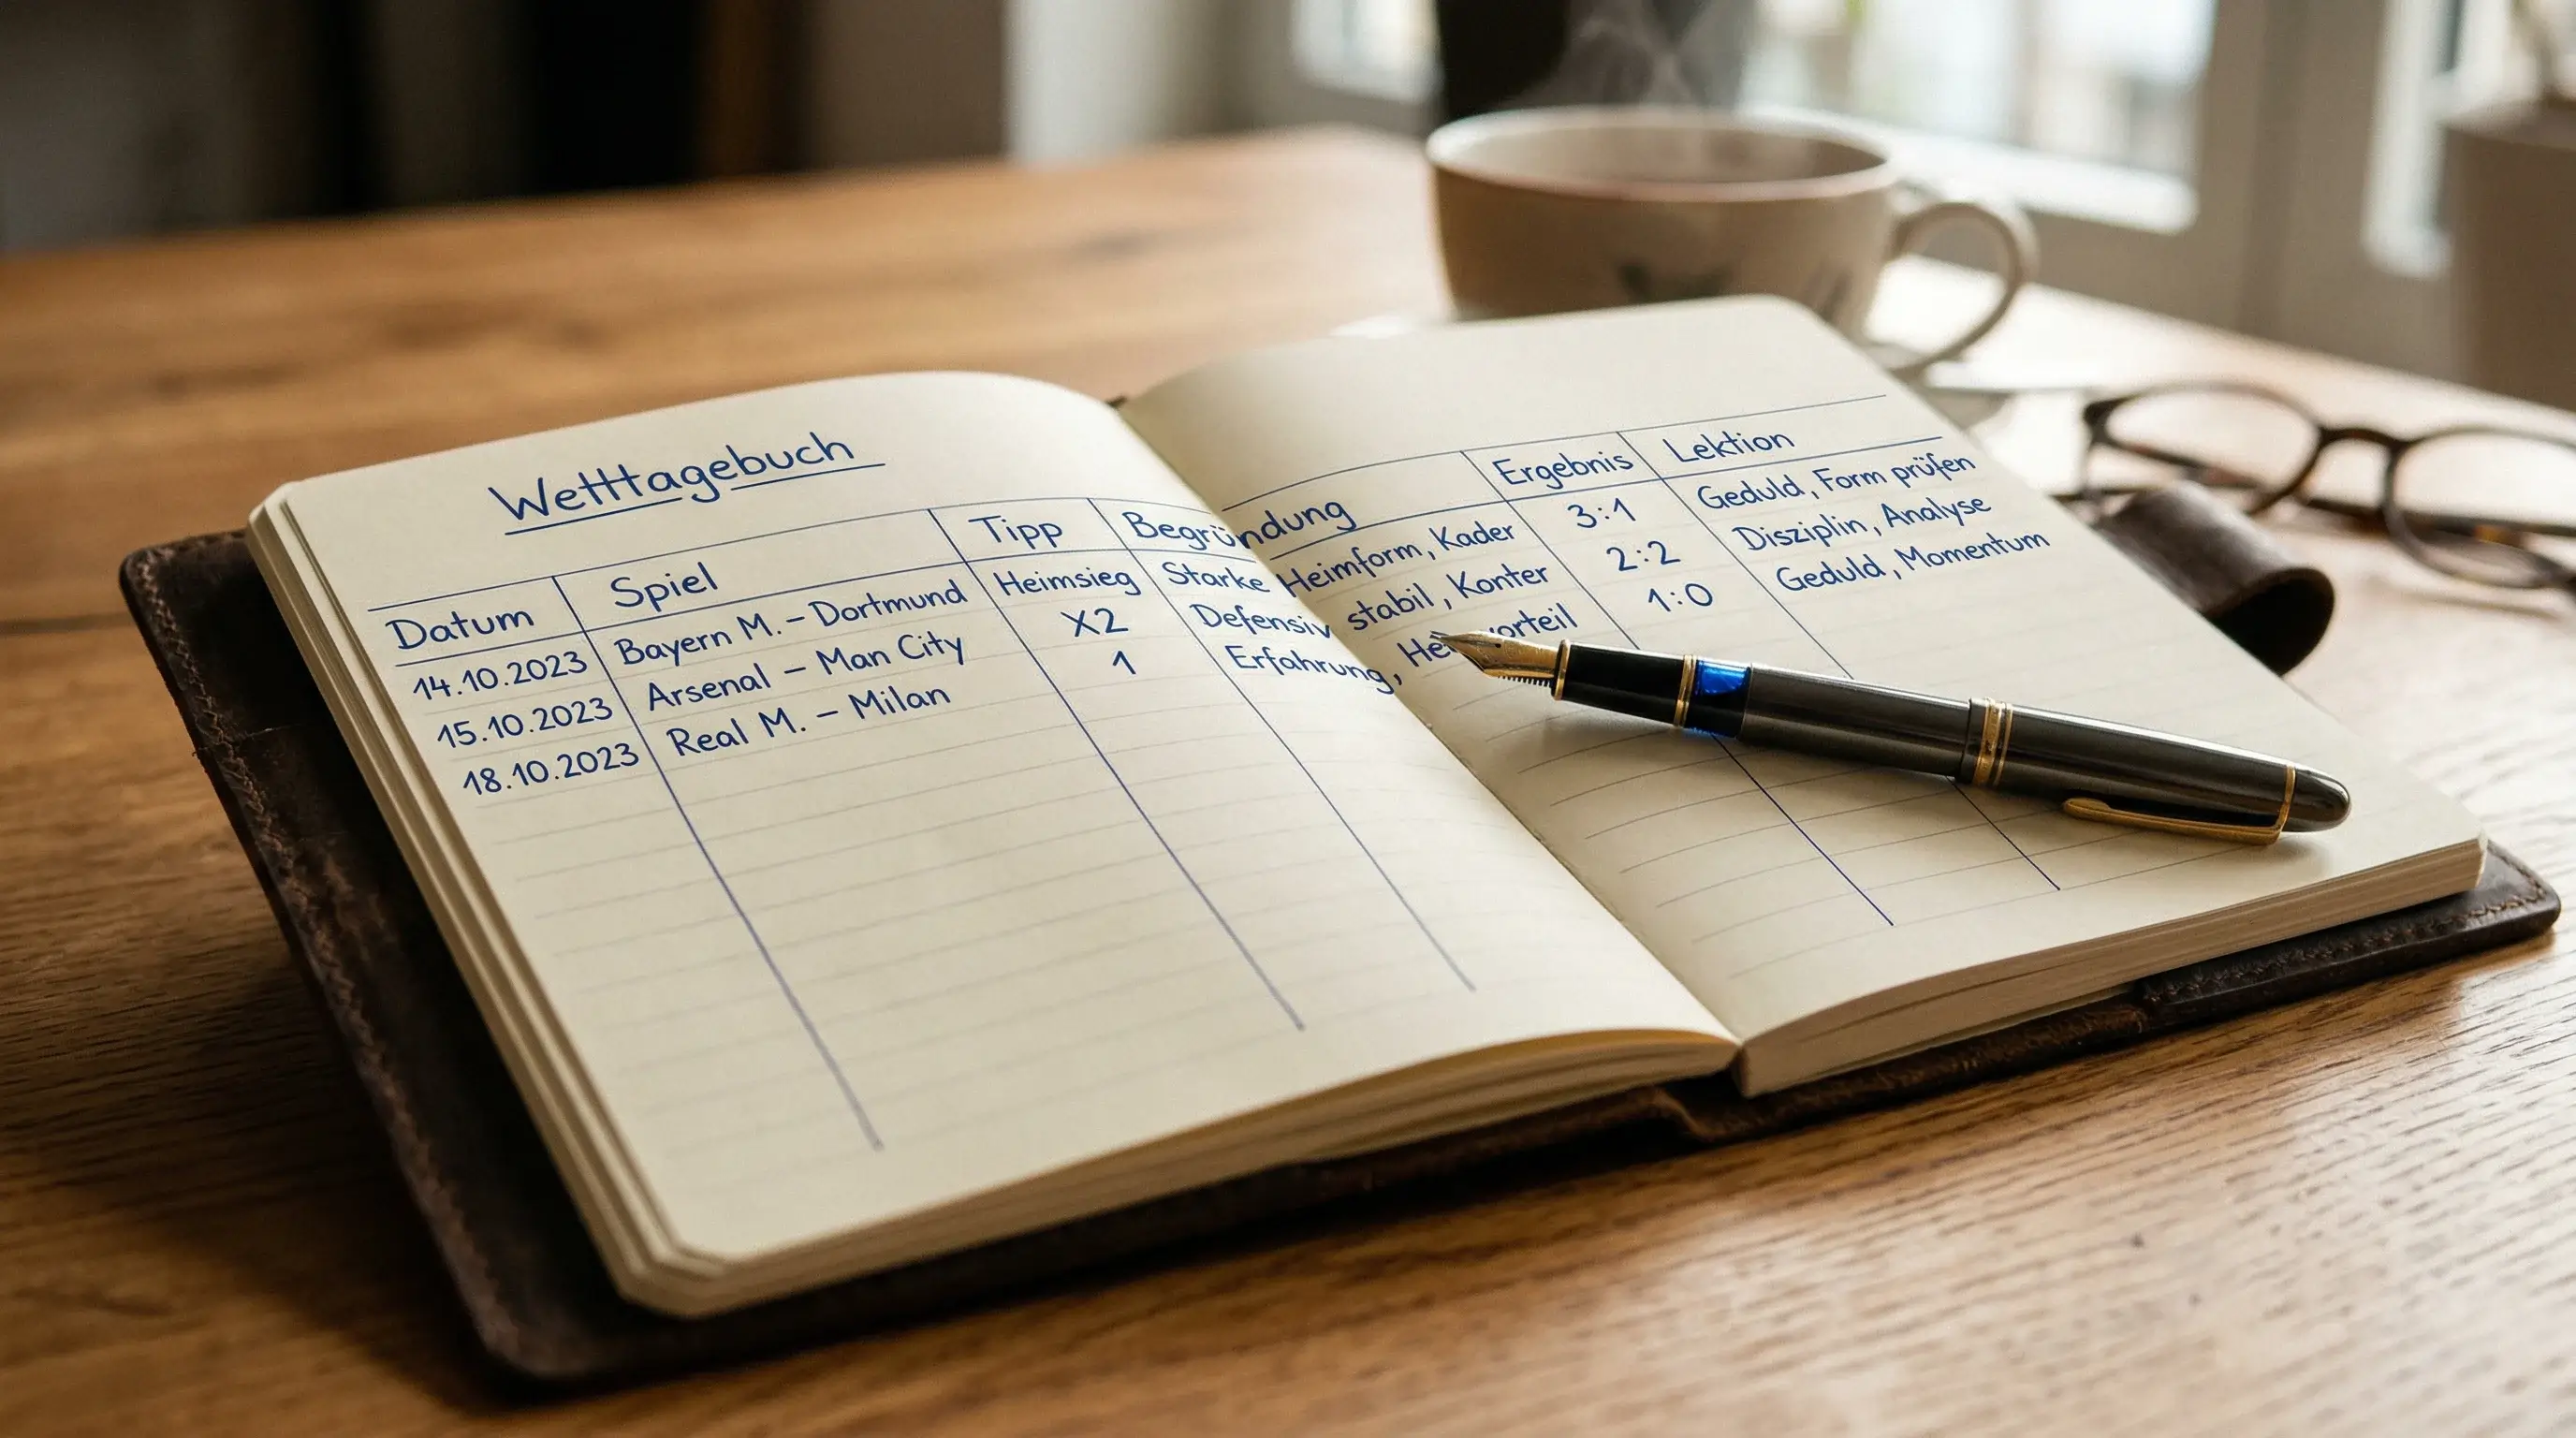 Wetttagebuch
Datum Spiel Tipp Begründung Ergebnis Lektion
14.10.2023 Bayern M. – Dortmund Heimsieg Starke Heimform, Kader 3:1 Geduld, Form prüfen
15.10.2023 Arsenal – Man City X2 Defensiv stabil, Konter 2:2 Disziplin, Analyse
18.10.2023 Real M. – Milan 1 Erfahrung, 1:0 Geduld, Momentum